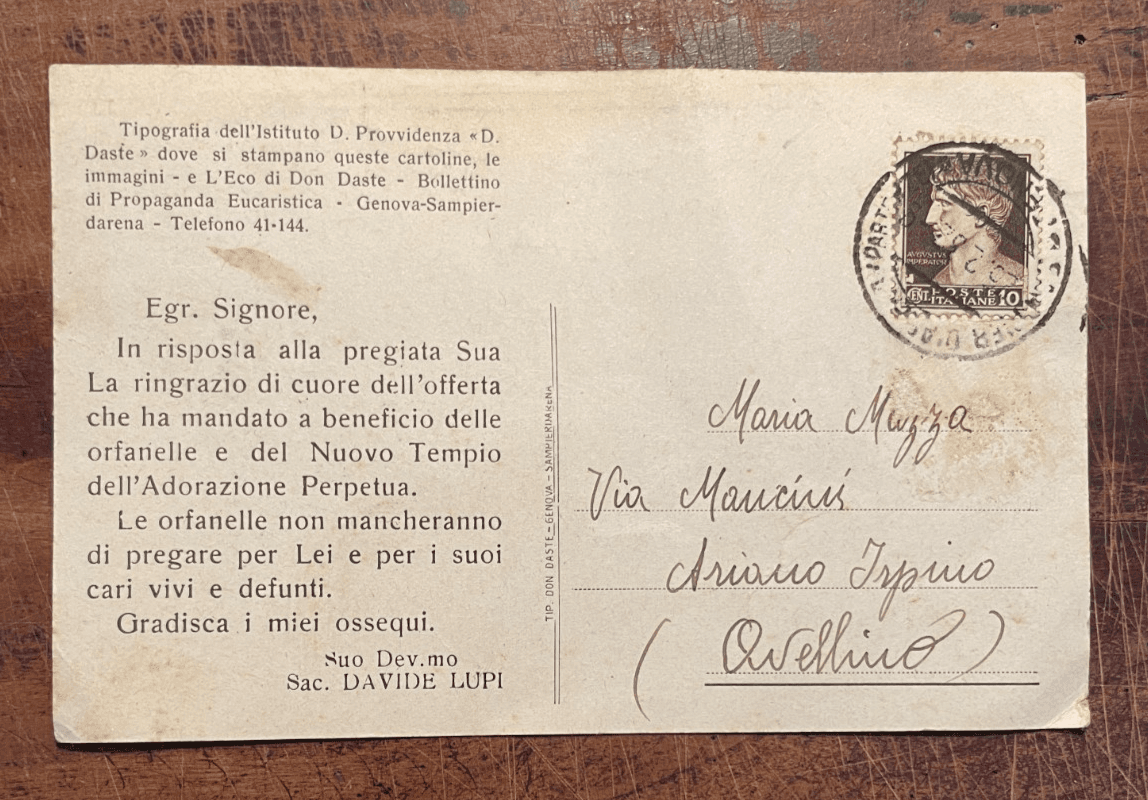 Tipografia dell'Istituto D. Provvidenza «D.
Daste» dove si stampano queste cartoline, le
immagini - e L'Eco di Don Daste - Bollettino
di Propaganda Eucaristica - Genova-Sampier-
darena - Telefono 41-144.
Egr. Signore,
In risposta alla pregiata Sua
La ringrazio di cuore dell'offerta
che ha mandato a beneficio delle
orfanelle e del Nuovo Tempio
dell'Adorazione Perpetua.
Le orfanelle non mancheranno
di pregare per Lei e per i suoi
cari vivi e defunti.
Gradisca i miei ossequi.
Suo Dev.mo
Sac. DAVIDE LUPI
TIP. DON DASTE - GENOVA - SAMPIERDARENA
AVGVSTVS
IMPERATOR
CENT. POSTE
ITALIANE 10
Maria Muzza
Via Mancini
Ariano Irpino
(Avellino)